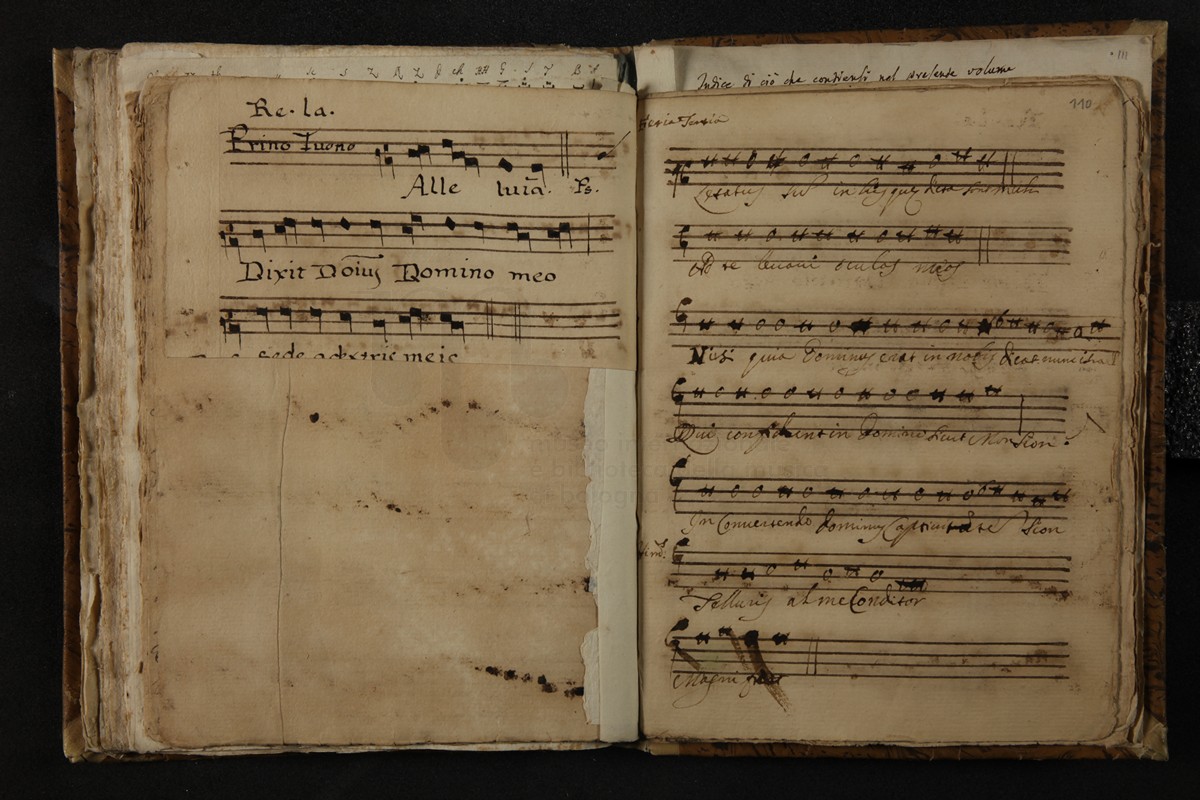 Re. la.
Primo Tuono
Alle luia. Ps.
Dixit Doīus Domino meo
sede adextris meis
Indice di ciò che contiensi nel presente volume
111
110
Feria Tertia
Letatus su in his que dicta sunt mihi
Ad te leuaui oculos meos
Nisi quia Dominus erat in nobis dicat nunc isra
Qui confidunt in Domino sicut Mon Sion
In Conuertendo dominus Captiuitate Sion
Telluris alme Conditor
Magni